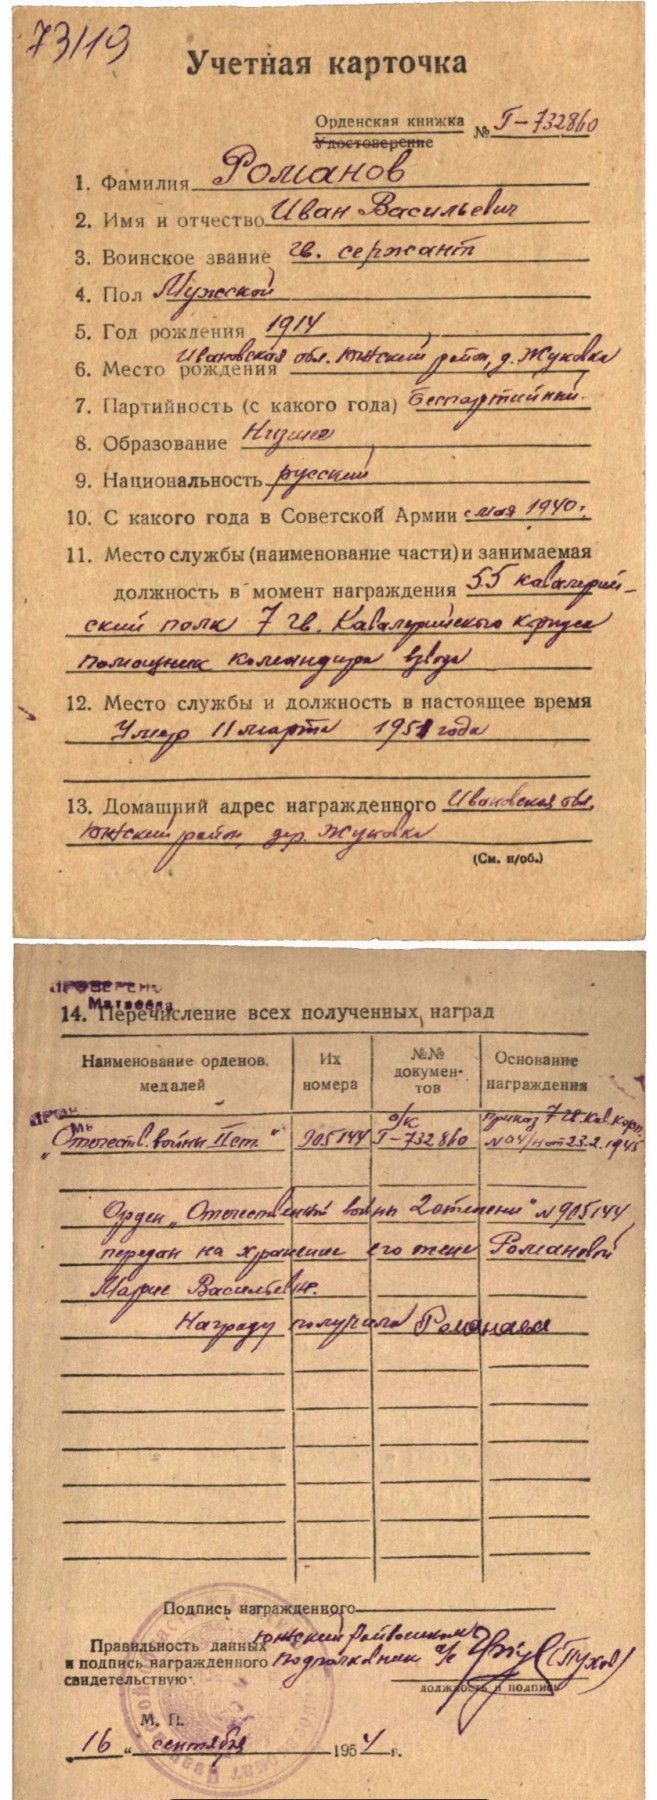 73/19
Учетная карточка
Орденская книжка
Удостоверение
№ Г-732860
1. Фамилия Романов
2. Имя и отчество Иван Васильевич
3. Воинское звание гв. сержант
4. Пол Мужской
5. Год рождения 1914
Ивановская обл. Южский район, д. Жуковка
6. Место рождения
7. Партийность (с какого года) беспартийный.
8. Образование Низшее
9. Национальность русский
10. С какого года в Советской Армии с мая 1940г.
11. Место службы (наименование части) и занимаемая
должность в момент награждения 55 кавалерий-
ский полк 7 гв. Кавалерийского корпуса
помощник командира взвода
12. Место службы и должность в настоящее время
Умер 11 марта 1951 года
13. Домашний адрес награжденного Ивановская обл,
Южский район, дер. Жуковка
(См. н/об.)
ПРОВЕРЕНО
Матвеева
14. Перечисление всех полученных наград
Наименование орденов, медалей
Их номера
№№ докумен-
тов
Основание награждения
„Отечеств. войны II ст." 905144 о/к Г-732860 Приказ 7 гв. Кав. корп. №04/н от 23.2.1945
Орден „Отечественной войны 2 степени" №905144
передан на хранение его жене Романовой
Марие Васильевне.
Награду получила Романова
Подпись награжденного
Правильность данных Южский Райвоенком
и подпись награжденного Подполковник а/с (Пухов)
свидетельствую
должность и подпись
М. П.
„16" сентября 1954 г.